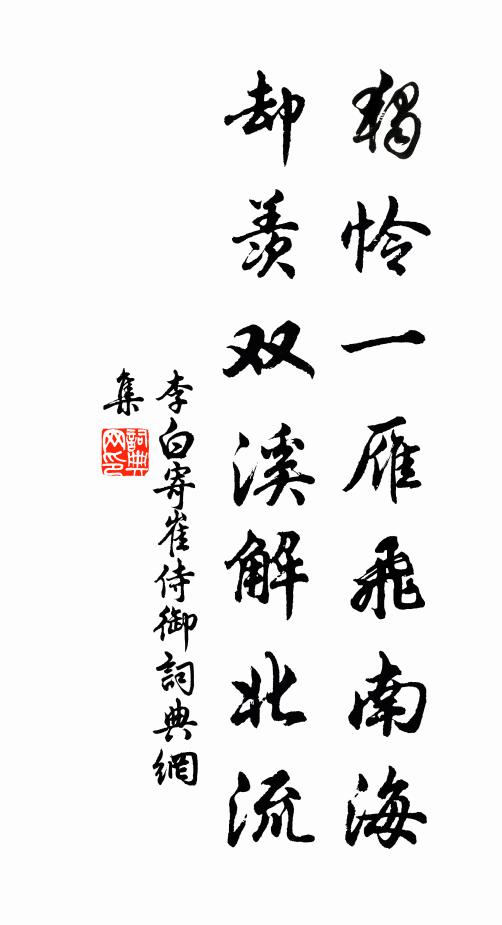 獨怜一雁飛南海
却羨双溪解北流
李白寄崔侍御詞典網
集
詞典
网印